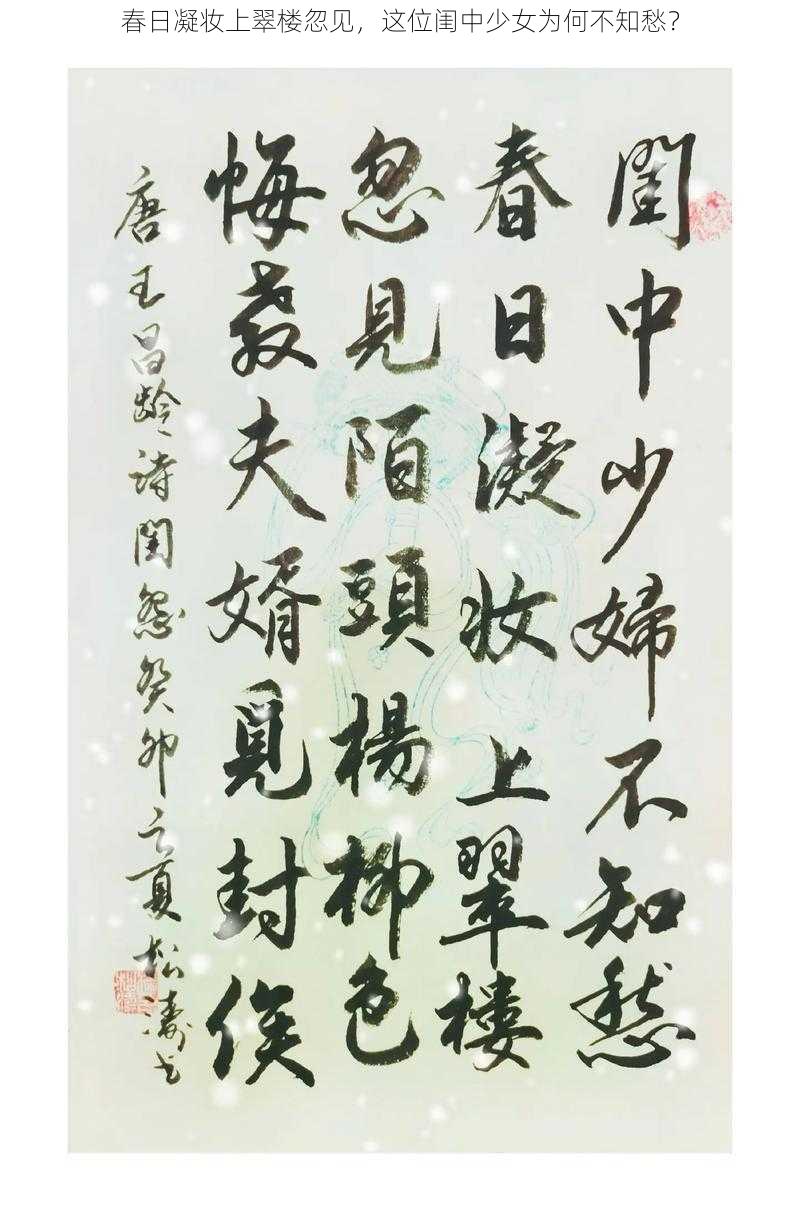 春日凝妆上翠楼忽见，这位闺中少女为何不知愁？
閨中少婦不知愁
春日凝妆上翠楼
忽見陌頭楊柳色
悔教夫婿覓封侯
唐王昌齡詩閨怨癸卯之夏松涛书